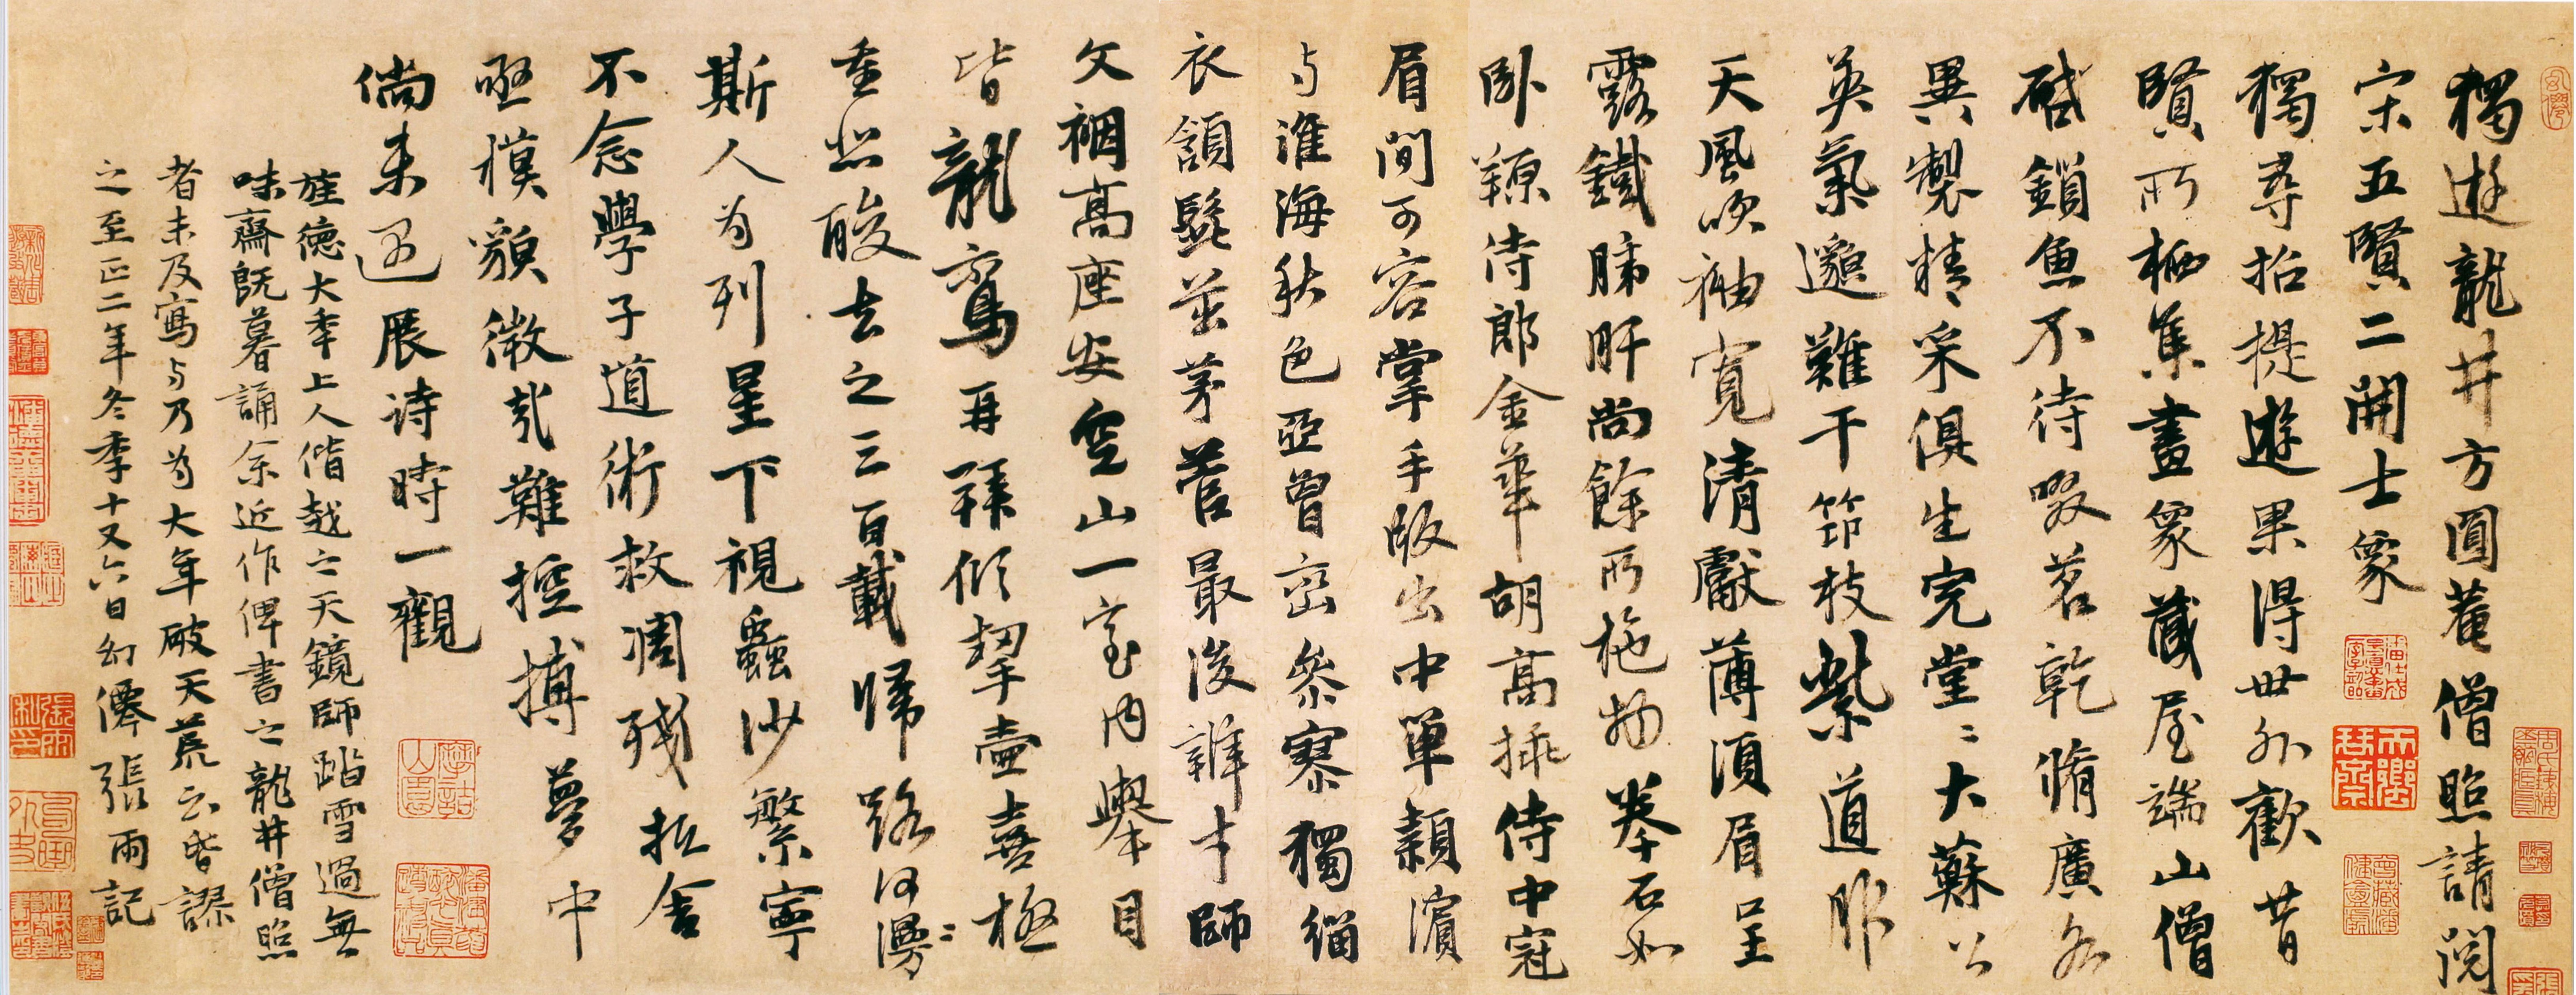 獨遊龍井方圓菴僧照請閱
宋五賢二開士象
獨尋招提遊果得世外歡昔
賢所栖集畫象藏屋端山僧
啟鎖魚不待啜茗乾脩廣各
異製精采俱生完堂〻大蘇公
英氣邈難干笻枝紫道服
天風吹袖寬清獻薄須眉呈
露鐵肺肝尚餘所施物拳石如
卧羱侍郎金華胡高揷侍中冠
眉間可容掌手版出中單潁濱
与淮海秋色亞曾巒參寥獨緇
衣頷髭並茅菅最後辯才師
文裀高座安空山一室內舉目
皆龍鸞再拜傾挈壺喜極
重悲酸去之三百載歸路何漫〻
斯人為列星下視蟲沙繁寧
不念學子道術救凋殘抵舍
亟摸貌微哉難控摶夢中
倘未遇展詩時一觀
旌德大年上人偕越之天鏡師踏雪過無
味齋旣暮誦余近作俾書之龍井僧照
者未及寫与乃為大年破天荒云皆謬
之至正二年冬季十又六日幻僊張雨記